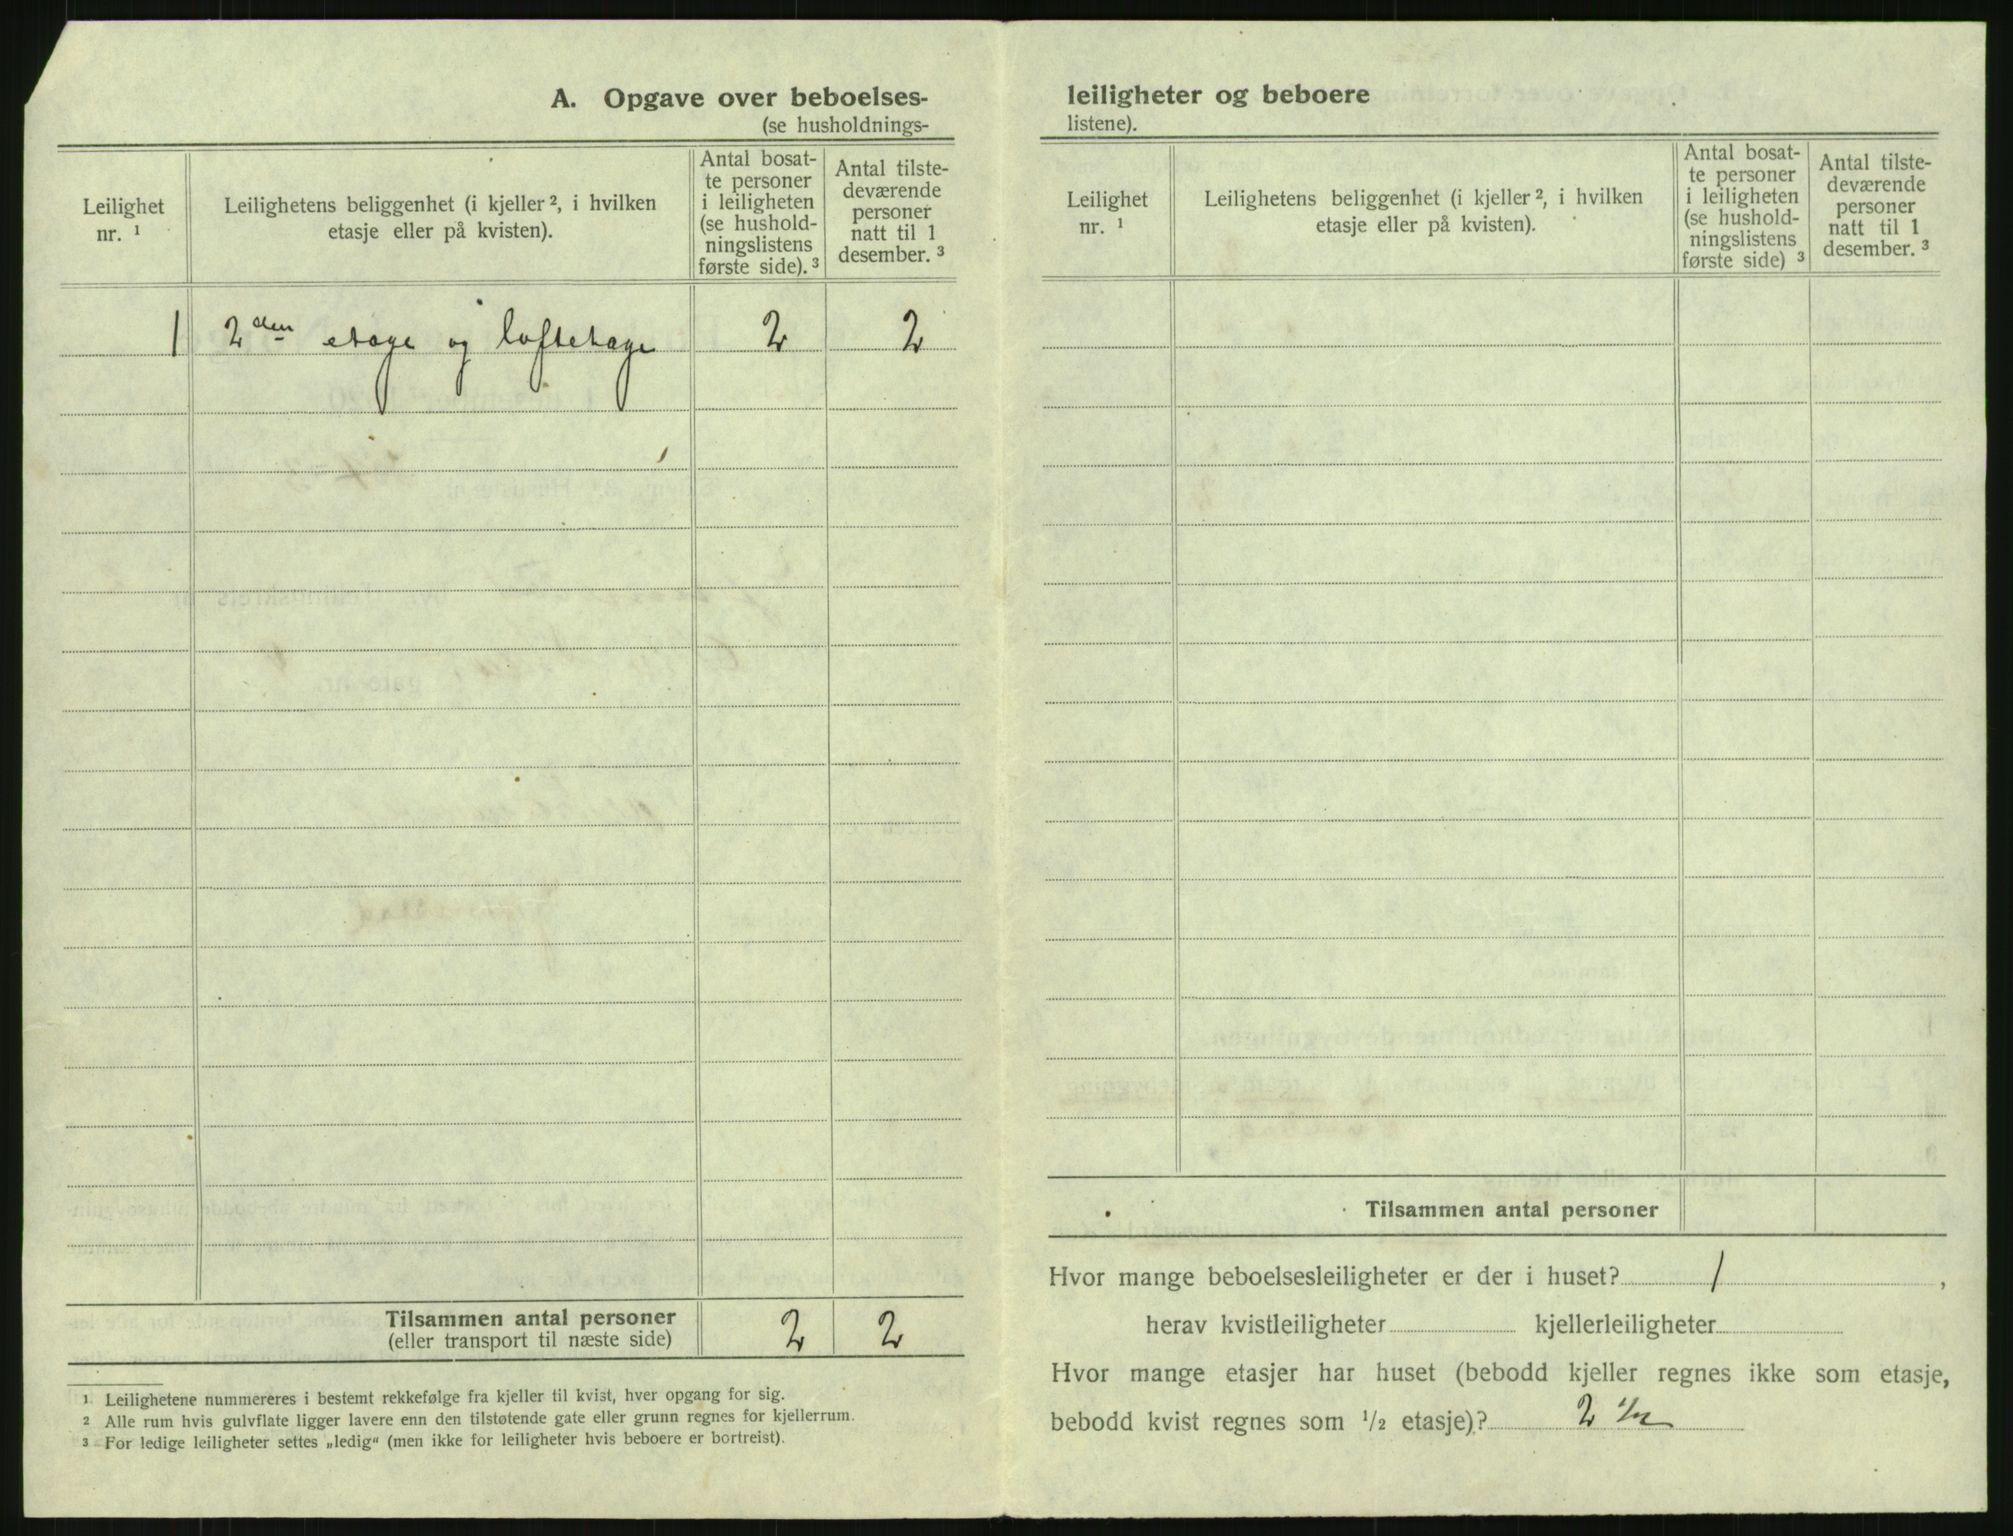 A. Opgave over beboelses-
(se husholdnings-
Leilighet nr. ¹
Leilighetens beliggenhet (i kjeller ², i hvilken
etasje eller på kvisten).
Antal bosat-
te personer
i leiligheten
(se hushold-
ningslistens
første side). ³
Antal tilste-
deværende
personer
natt til 1
desember. ³
1 2den etage og loftetage 2 2
Tilsammen antal personer 2 2
(eller transport til næste side)
¹ Leilighetene nummereres i bestemt rekkefølge fra kjeller til kvist, hver opgang for sig.
² Alle rum hvis gulvflate ligger lavere enn den tilstøtende gate eller grunn regnes for kjellerrum.
³ For ledige leiligheter settes „ledig“ (men ikke for leiligheter hvis beboere er bortreist).
leiligheter og beboere
listene).
Leilighet
nr. ¹
Leilighetens beliggenhet (i kjeller ², i hvilken
etasje eller på kvisten).
Antal bosat-
te personer
i leiligheten
(se hushold-
ningslistens
første side) ³
Antal tilste-
deværende
personer
natt til 1
desember. ³
Tilsammen antal personer
Hvor mange beboelsesleiligheter er der i huset? 1 ,
herav kvistleiligheter kjellerleiligheter
Hvor mange etasjer har huset (bebodd kjeller regnes ikke som etasje,
bebodd kvist regnes som ¹/₂ etasje)? 2 ½